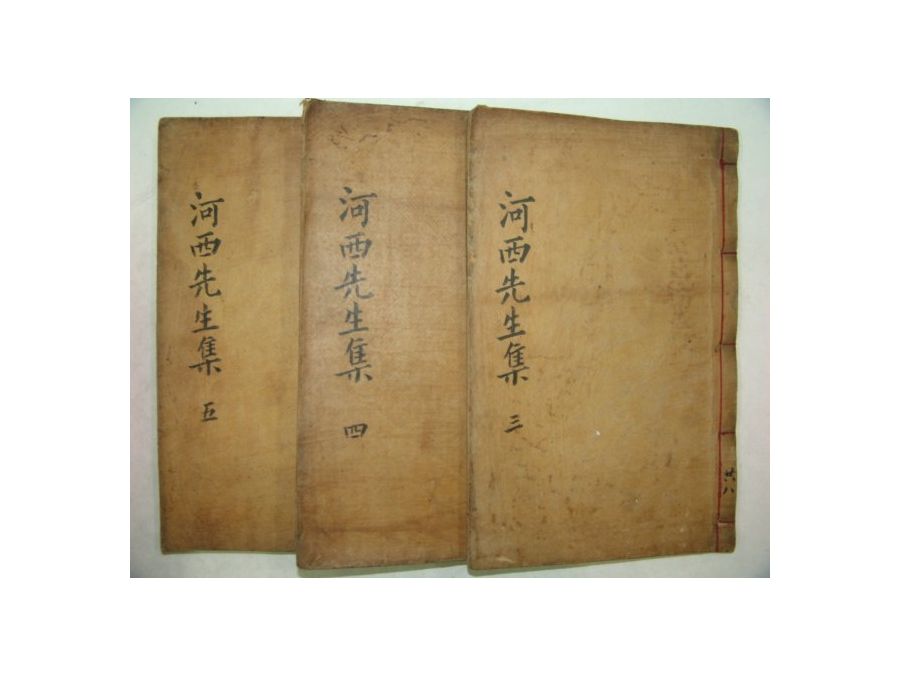 河西先生集 三
共八
河西先生集 四
河西先生集 五